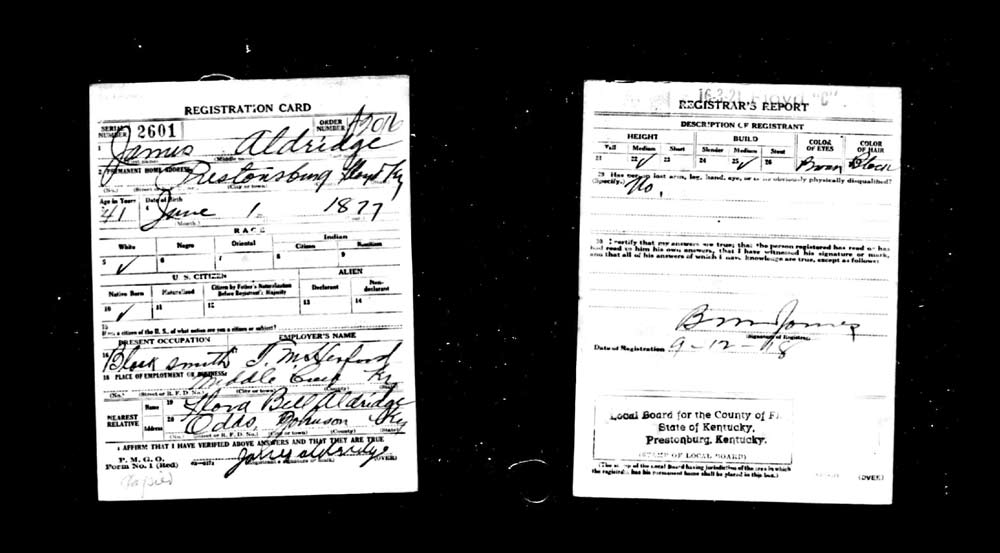 REGISTRATION CARD
SERIAL NUMBER 2601
ORDER NUMBER
1 James Aldridge
(Middle name)
2 PERMANENT HOME ADDRESS:
Prestonsburg Floyd Ky
(No.) (City or town)
Age in Years Date of Birth
41 June 1 1877
(Month.)
RACE
White Negro Oriental Indian
Citizen Noncitizen
5 ✓ 6 7 8 9
U. S. CITIZEN ALIEN
Native Born Naturalized Citizen by Father's Naturalization Before Registrant's Majority Declarant Non-declarant
10 ✓ 11 12 13 14
15 If not a citizen of the U. S., of what nation are you a citizen or subject?
PRESENT OCCUPATION EMPLOYER'S NAME
16 Black smith
18 PLACE OF EMPLOYMENT OR BUSINESS:
Middle Creek Ky
(No.) (Street or R. F. D. No.) (City or town) (County)
NEAREST RELATIVE
Name 19 Flora Bell Aldridge
Address 20 Odds Johnson Ky
(No.) (Street or R. F. D. No.) (City or town) (County) (State)
I AFFIRM THAT I HAVE VERIFIED ABOVE ANSWERS AND THAT THEY ARE TRUE
P. M. G. O.
Form No. 1 (Red)
James aldridge
(Registrant's signature or mark) (OVER)
REGISTRAR'S REPORT
DESCRIPTION OF REGISTRANT
HEIGHT BUILD COLOR OF EYES COLOR OF HAIR
Tall Medium Short Slender Medium Stout
21 22 ✓ 23 24 25 ✓ 26 Brown Black
29 Has person lost arm, leg, hand, eye, or is he obviously physically disqualified? (Specify.)
No,
30 I certify that my answers are true; that the person registered has read or has had read to him his own answers; that I have witnessed his signature or mark, and that all of his answers of which I have knowledge are true, except as follows:
(Signature of Registrar)
Date of Registration 9-12-18
Local Board for the County of
State of Kentucky,
Prestonburg, Kentucky.
(STAMP OF LOCAL BOARD)
(The stamp of the Local Board having jurisdiction of the area in which the registrant has his permanent home shall be placed in this box.)
(OVER)